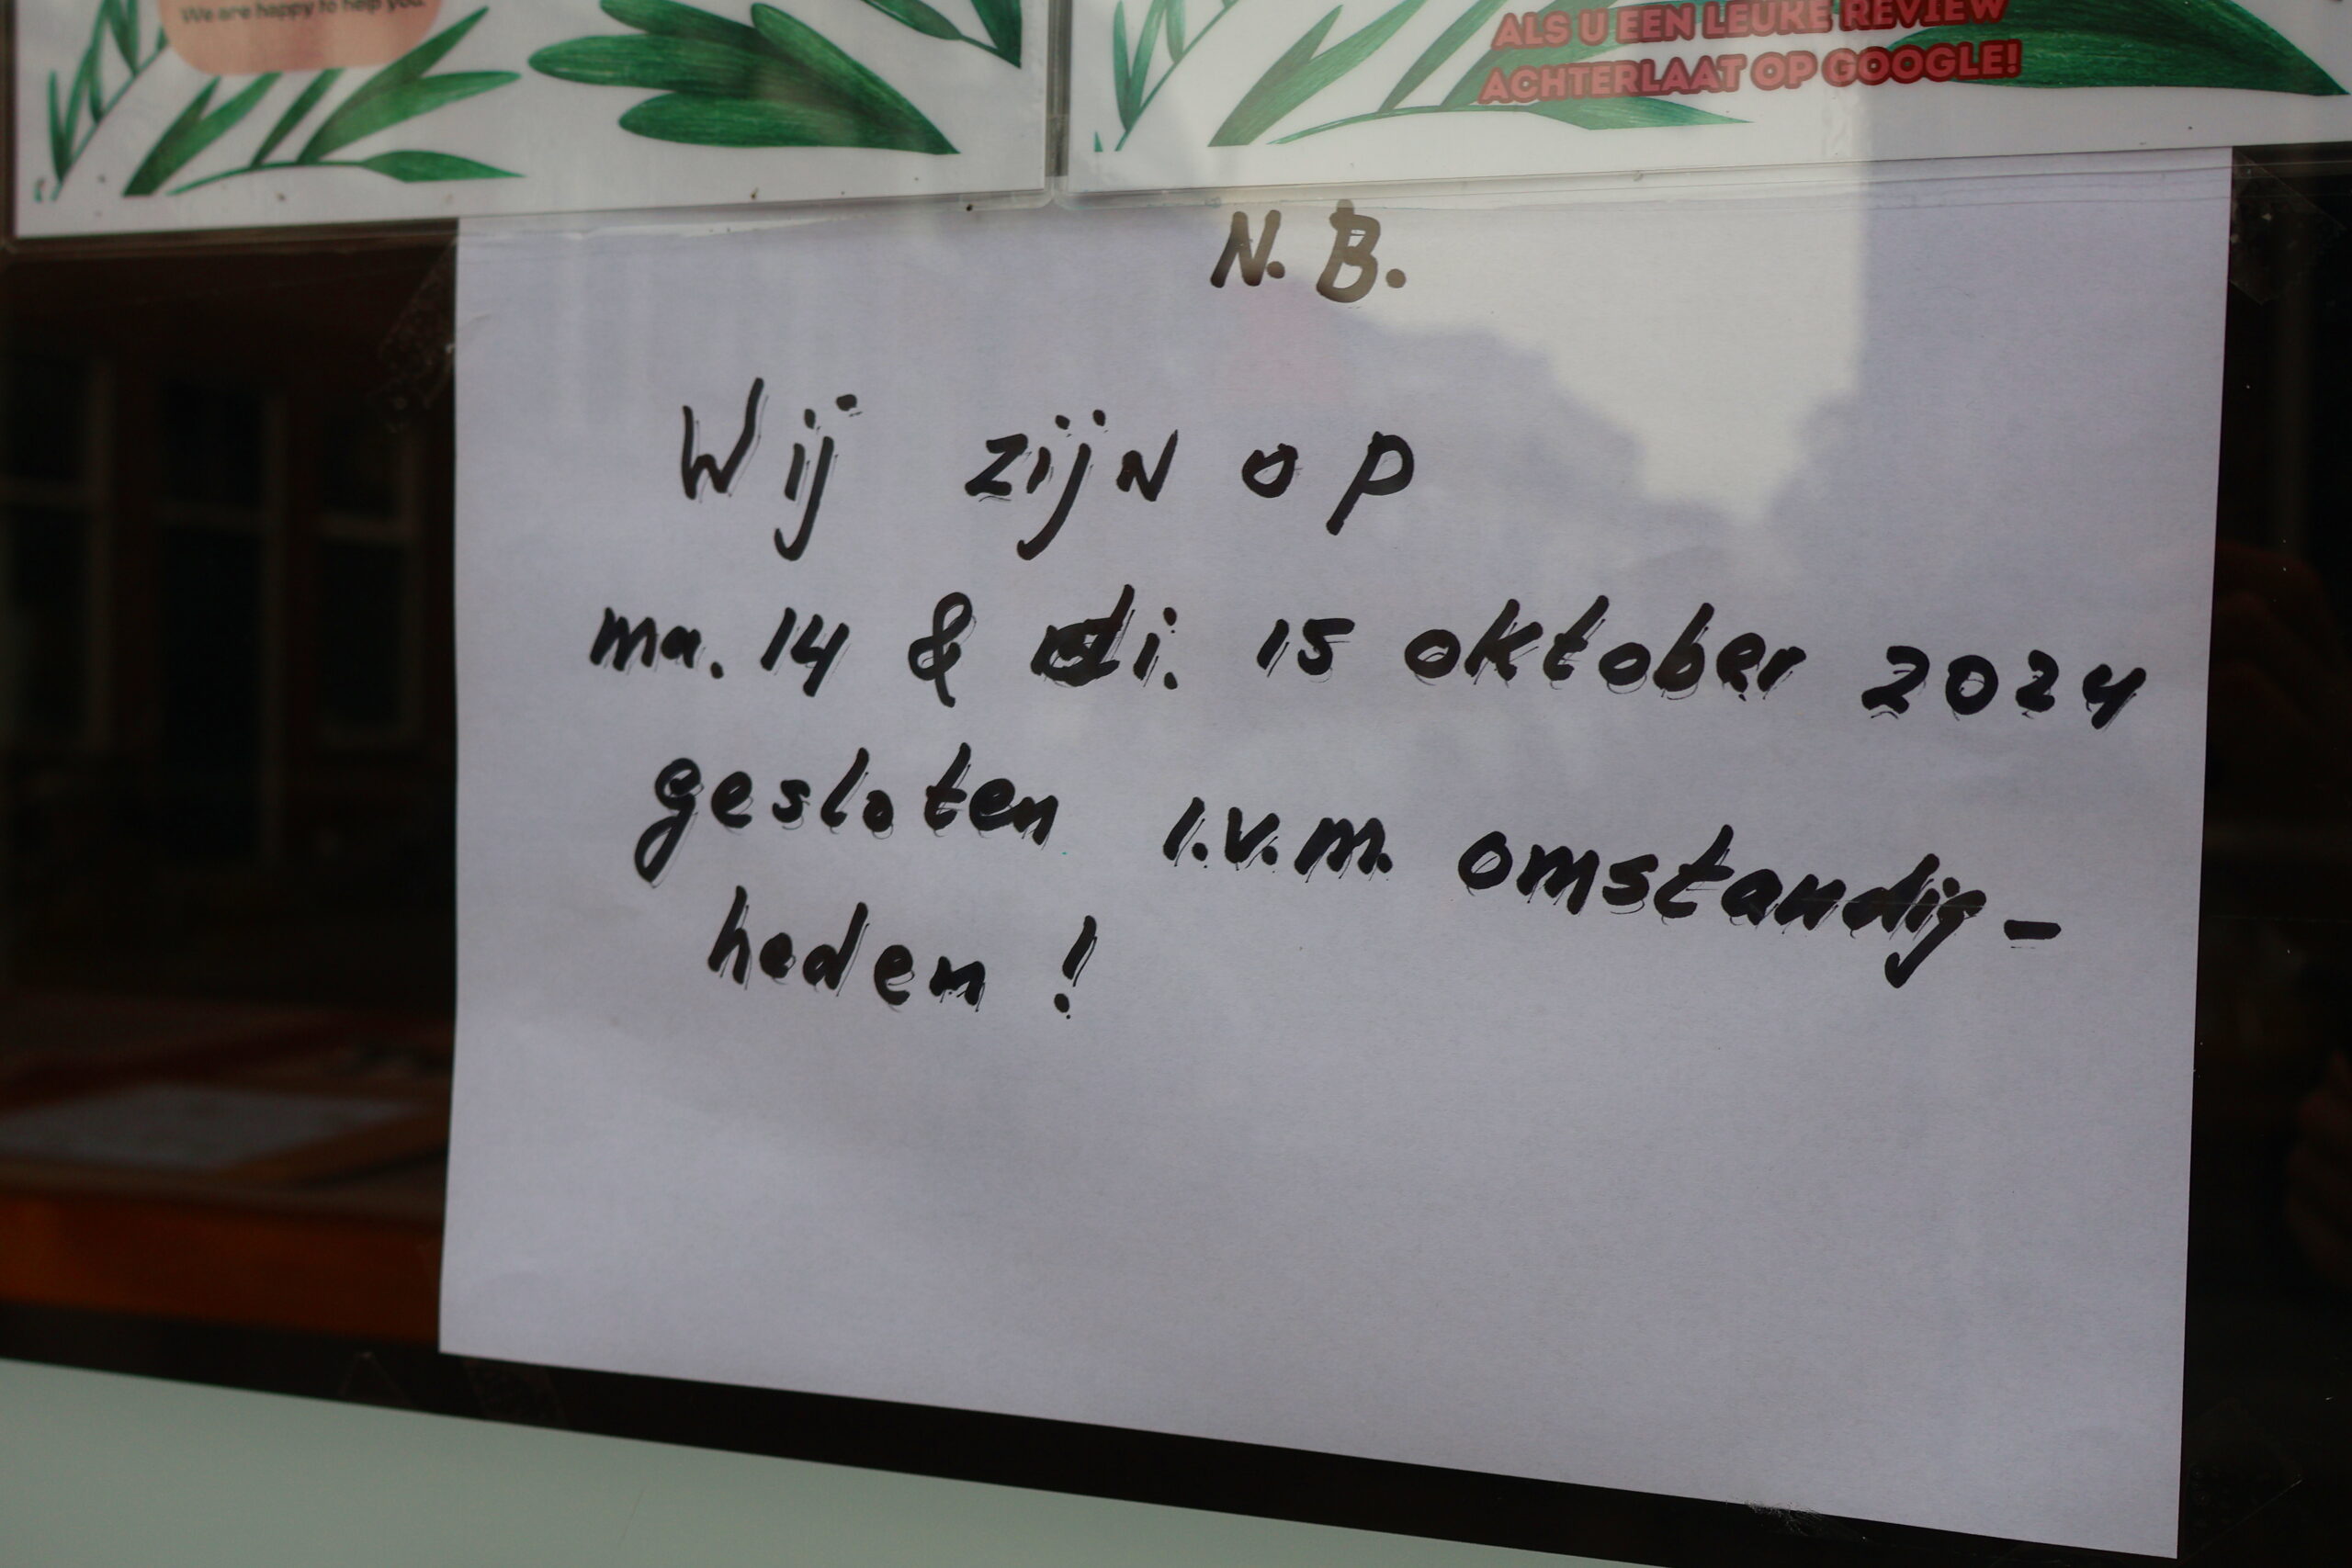 We are happy to help you.
ALS U EEN LEUKE REVIEW
ACHTERLAAT OP GOOGLE!
N.B.
Wij zijn op
ma. 14 & di. 15 oktober 2024
gesloten i.v.m. omstandig-
heden!